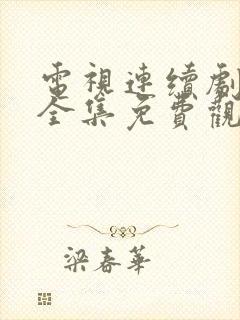 電視連續劇
全集免費觀
梁春華